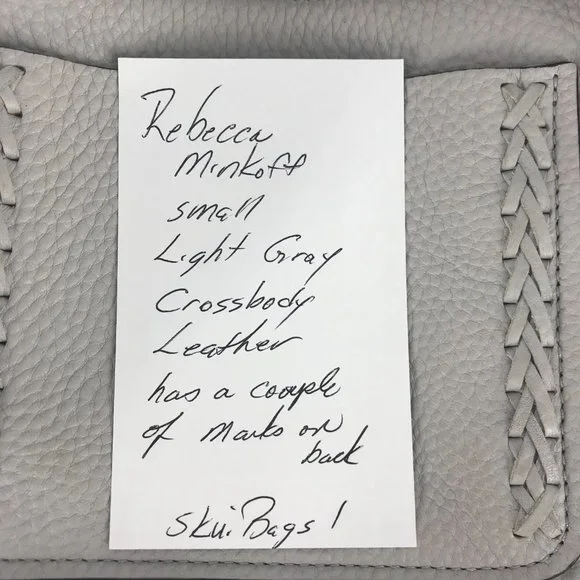 Rebecca
Minkoff
small
Light Gray
Crossbody
Leather
has a couple
of marks on
back
SKU: Bags 1